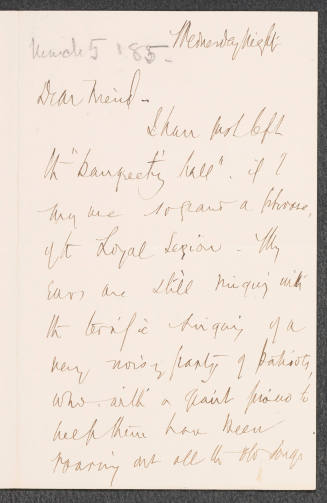 March 5 '85-
Wednesday Night
Dear Friend -
I have just left
the "banqueting hall". if I
may use so grand a phrase,
of the Loyal Legion - My
Ears are still ringing with
the terrific singing of a
very noisy party of patriots,
who, with a faint piano to
help them have been
roaring out all the old songs